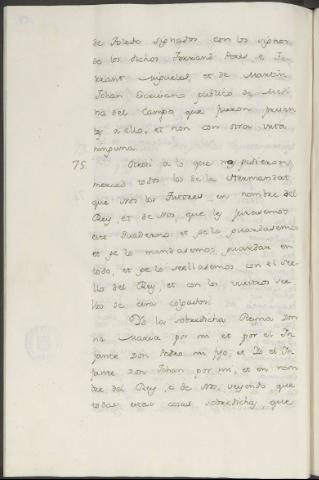 de Toledo signados con los signos
de los dichos Ferrand Peres, e Fe-
rrant Migueles, et de Martin
Johan Escrivano publico de Medi
na del Campo que fueron presen
tes a ello, et non con otra carta
ninguna.
75. Otrosi a lo que nos pidieron
merced todos los de la Hermandat
que Nos los Tutores, en nombre del
Rey, et de Nos, que les jurasemos
este Quaderno et se lo guardasemos
et se lo mandasemos guardar en
todo, et se lo sellasemos con el Se-
llo del Rey, et con los nuestros se-
llos de cera colgados.
Yo la sobredicha Reyna Don
na Maria por mi et por el In-
fante Don Pedro mi fijo, et Yo el In-
fante Don Johan por mi, et en nom
bre del Rey, e de Nos, veyendo que
todas estas cosas sobredichas que